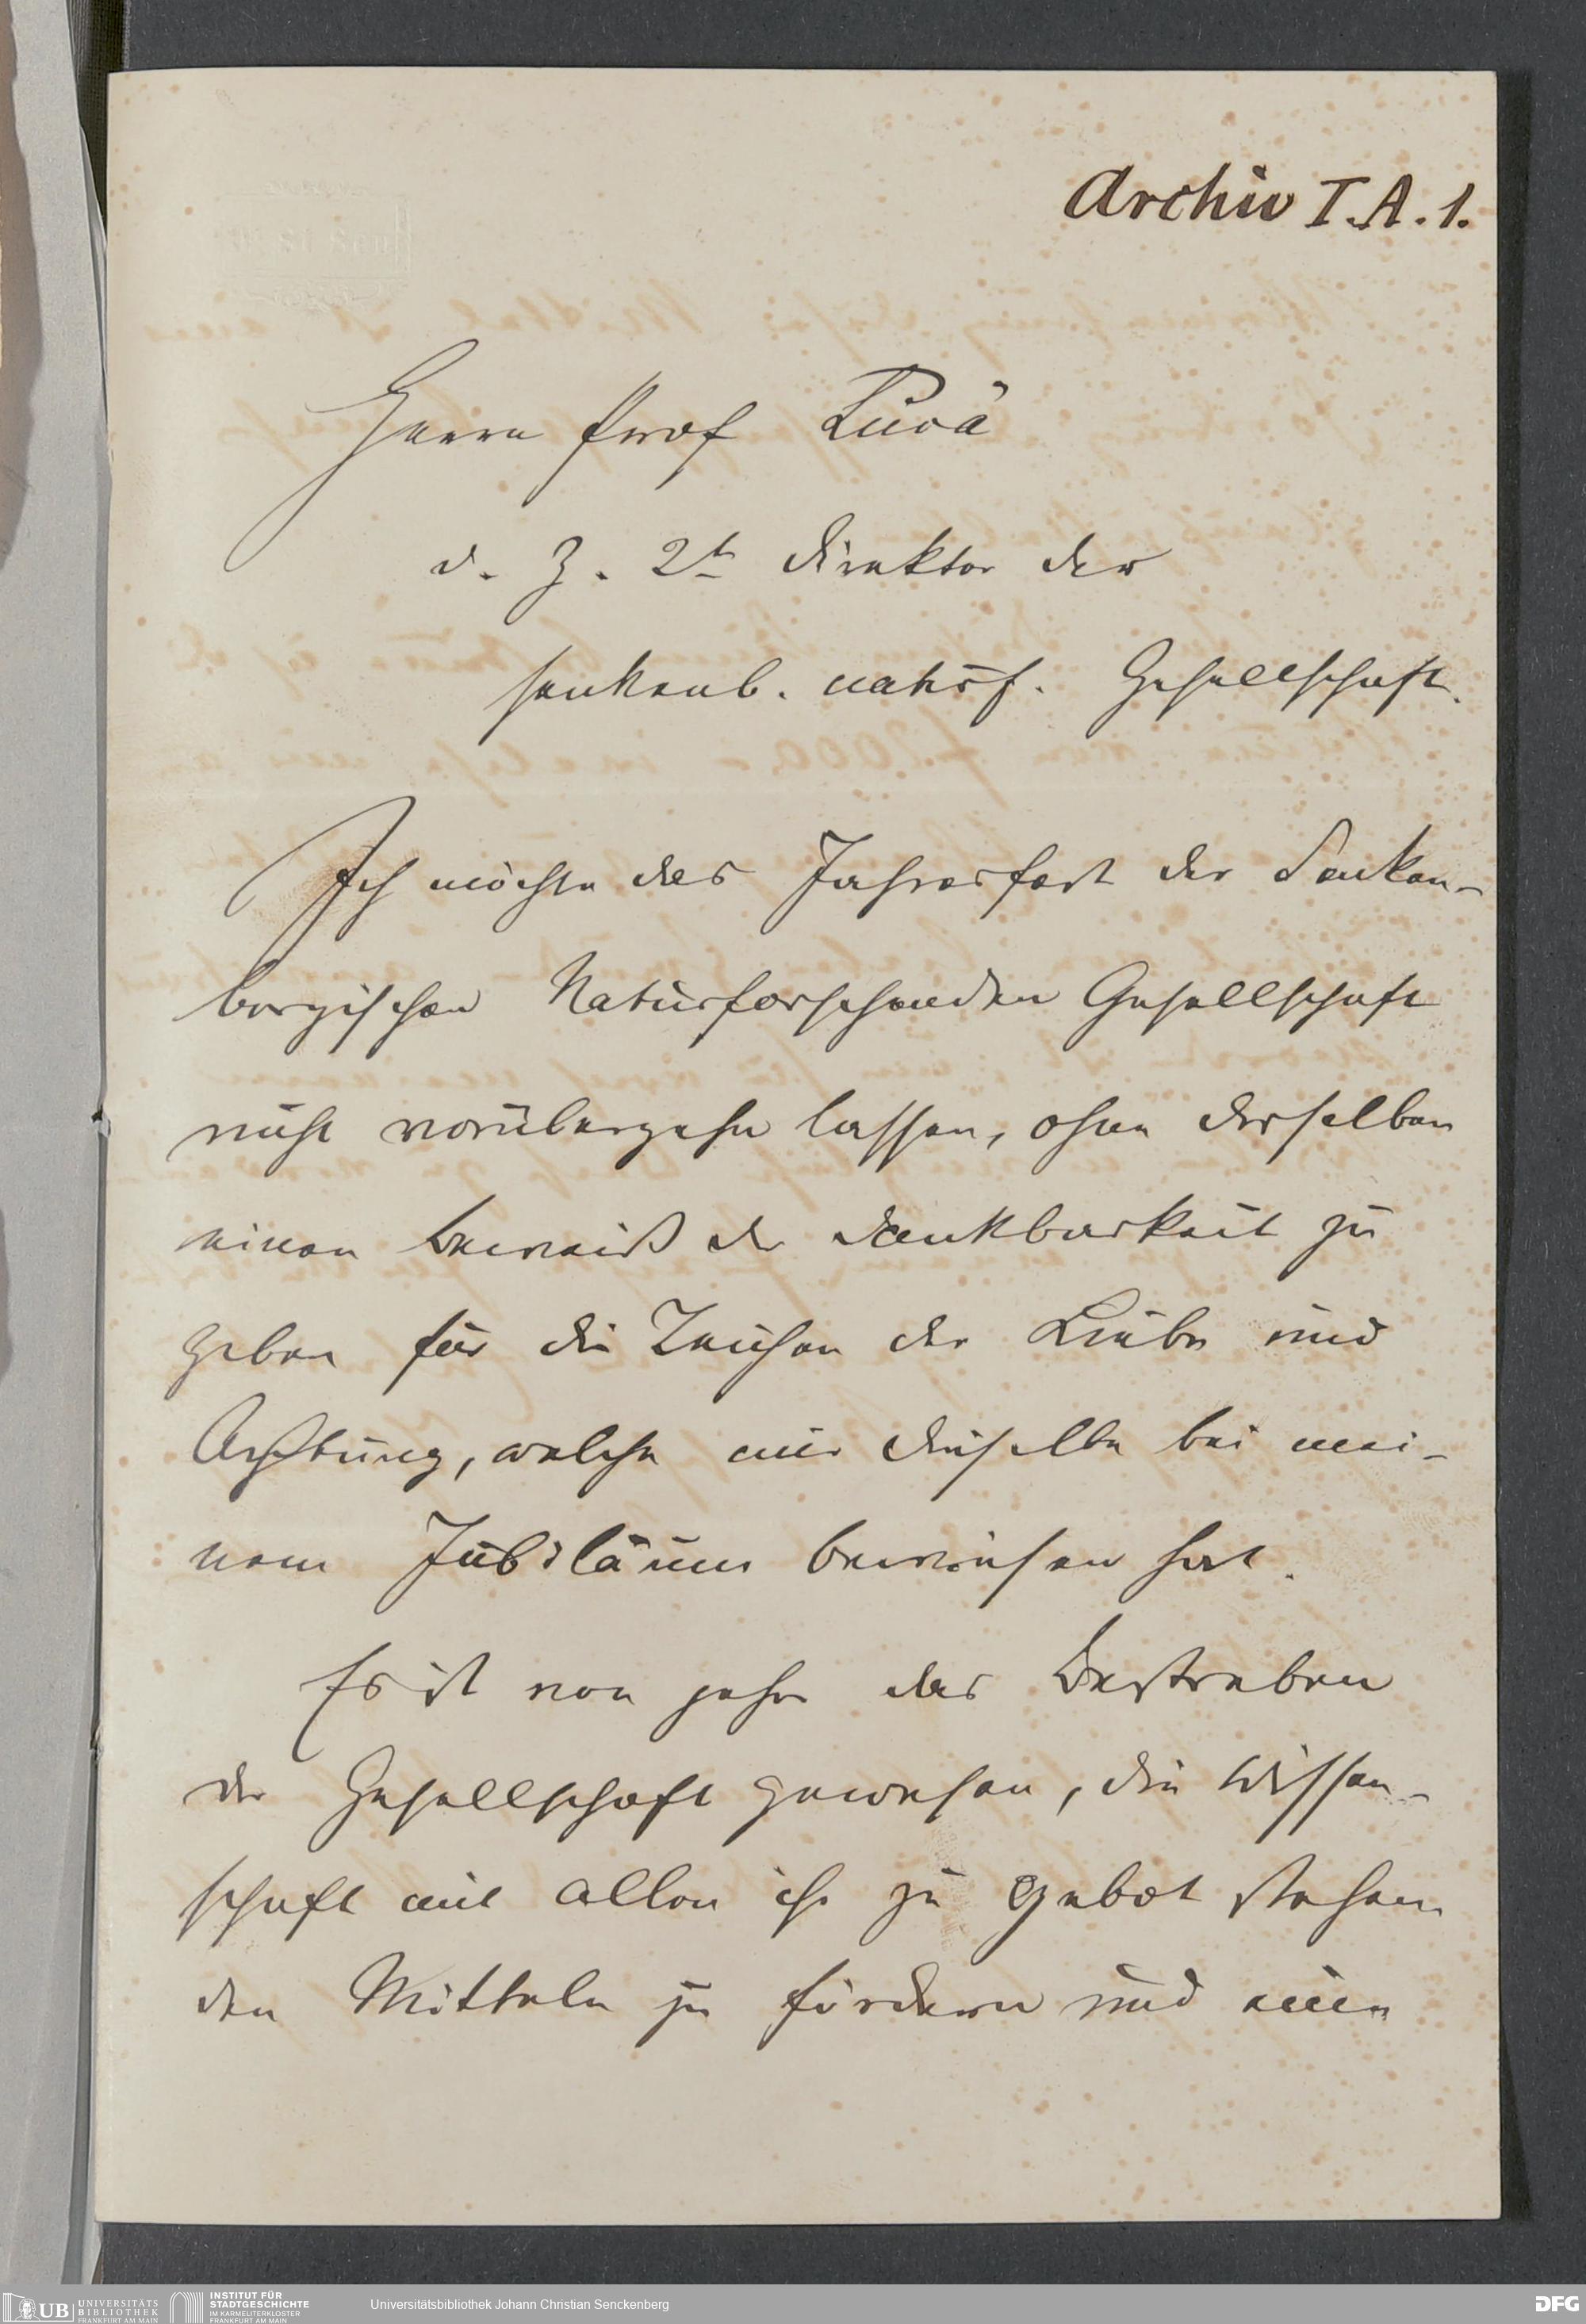 Archiv I.A.1.
Herrn Prof Lucä
d. Z. 2t Direktor der
senkenb. natürf. Gesellschaft.
Ich möchte das Jahresfest der Senken-
bergischen Naturforschenden Gesellschaft
nicht vorübergehn lassen, ohne derselben
einen Beweiß der Dankbarkeit zu
geben für die Zeichen der Liebe und
Achtung, welche mir dieselbe bei mei-
nem Jubiläum bewiesen hat.
Es ist von jeher das Bestreben
der Gesellschaft gewesen, die Wissen-
schaft mit allen ihr zu Gebot stehen
den Mitteln zu fördern und eine
UB UNIVERSITÄTS
BIBLIOTHEK
FRANKFURT AM MAIN
INSTITUT FÜR
STADTGESCHICHTE
IM KARMELITERKLOSTER
FRANKFURT AM MAIN
Universitätsbibliothek Johann Christian Senckenberg
DFG